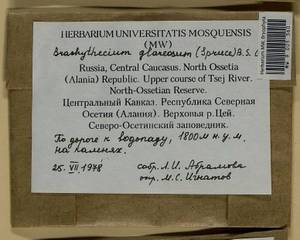 HERBARIUM UNIVERSITATIS MOSQUENSIS
(MW)
Brachythecium glareosum (Spruce) B.S.G.
Russia, Central Caucasus. North Ossetia
(Alania) Republic. Upper course of Tsej River.
North-Ossetian Reserve.
Центральный Кавказ. Республика Северная
Осетия (Алания). Верховья р.Цей.
Северо-Осетинский заповедник.
По дороге к водопаду, 1800м н.у.м.
на камнях.
25.VII 1978 собр. Л.И. Абрамова
опр. М.С. Игнатов